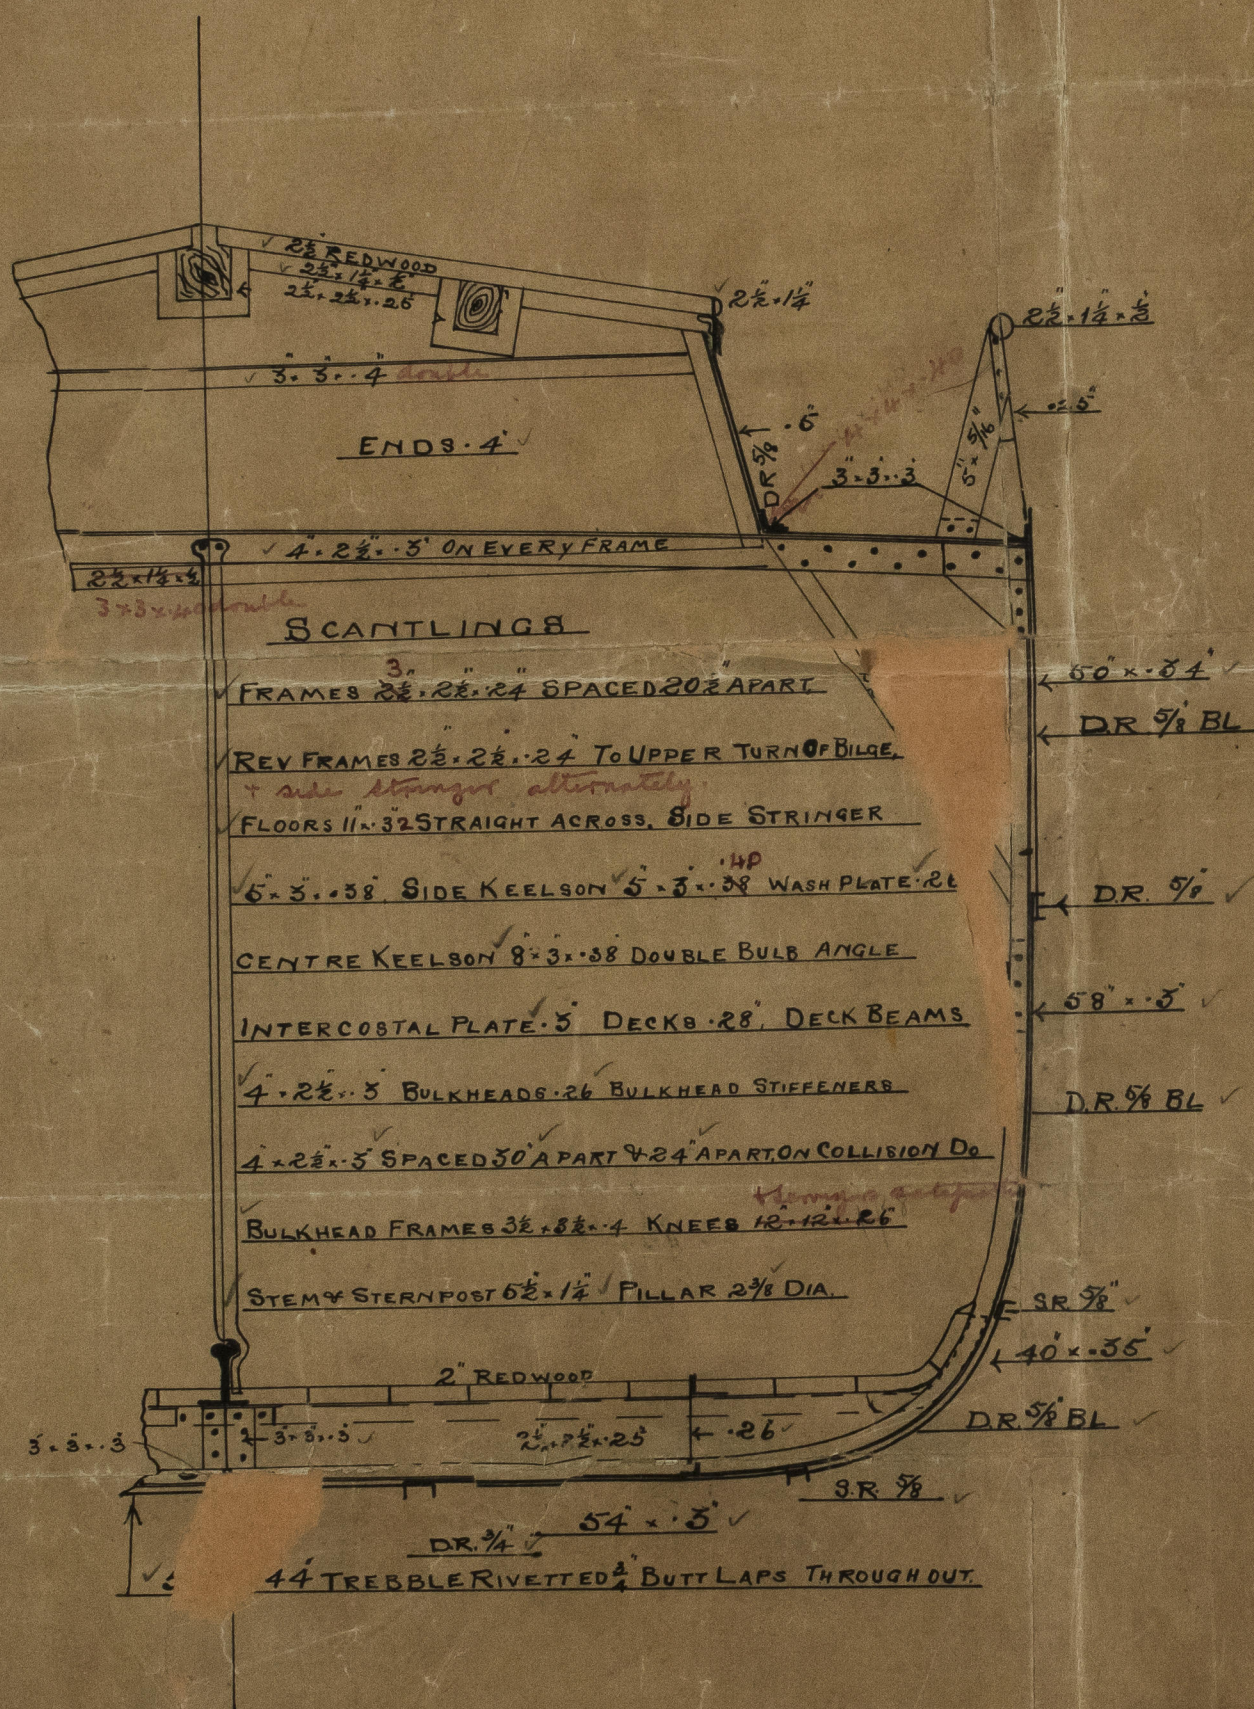 2½" REDWOOD
2½" × 1¼" × ½"
2½ × 2½ × .26
2½" × 1¼"
2½" × 1¼" × ½"
3" × 3" × .4" double
.3"
.25"
5" × 5/16"
DR 5/8
ENDS .4"
3" × 3" × .3
4" × 2½" × .3" ON EVERY FRAME
2½ × 1¼ × ½
3 × 3 × .40 double
SCANTLINGS
3
FRAMES 2½" × 2½" × .24" SPACED 20½" APART
50" × .34"
D.R. 5/8 BL
REV FRAMES 2½" × 2½" × .24" TO UPPER TURN OF BILGE,
+ side stringer alternately.
FLOORS 11" × .32 STRAIGHT ACROSS. SIDE STRINGER
.40
5" × 3" × .38". SIDE KEELSON 5" × 3" × .38 WASH PLATE .26
D.R. 5/8"
CENTRE KEELSON 8" × 3" × .38 DOUBLE BULB ANGLE
58" × .3"
INTERCOSTAL PLATE .3" DECKS .28", DECK BEAMS
4" × 2½" × .3 BULKHEADS .26" BULKHEAD STIFFENERS
D.R. 5/8 BL
4 × 2½" × .3" SPACED 30" APART & 24" APART, ON COLLISION DO
BULKHEAD FRAMES 3½ × 3½ × .4 KNEES 12" × 12" × .26"
STEM & STERNPOST 5½" × 1¼" PILLAR 2 3/8" DIA.
S.R. 5/8"
40" × .35"
2" REDWOOD
D.R. 5/8" BL
3" × 3" × .3
3" × 3" × .3
2½" × 2½" × .25"
.26"
S.R. 5/8
54" × .3"
D.R. ¾"
44" TREBBLE RIVETTED ¾" BUTT LAPS THROUGHOUT.